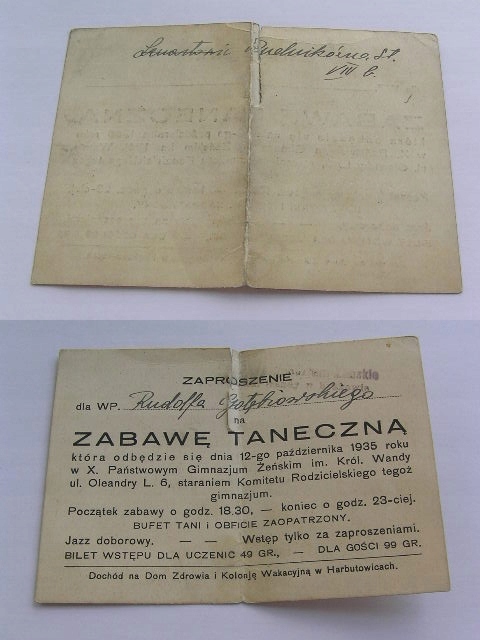 Rudnikówna St.
VIII b.
ZAPROSZENIE
dla WP. Rudolfa Gołębiowskiego
na
ZABAWĘ TANECZNĄ
która odbędzie się dnia 12-go października 1935 roku
w X. Państwowym Gimnazjum Żeńskim im. Król. Wandy
ul. Oleandry L. 6, staraniem Komitetu Rodzicielskiego tegoż
gimnazjum.
Początek zabawy o godz. 18.30, — koniec o godz. 23-ciej.
BUFET TANI i OBFICIE ZAOPATRZONY.
Jazz doborowy. — — Wstęp tylko za zaproszeniami.
BILET WSTĘPU DLA UCZENIC 49 GR., — DLA GOŚCI 99 GR.
Dochód na Dom Zdrowia i Kolonję Wakacyjną w Harbutowicach.